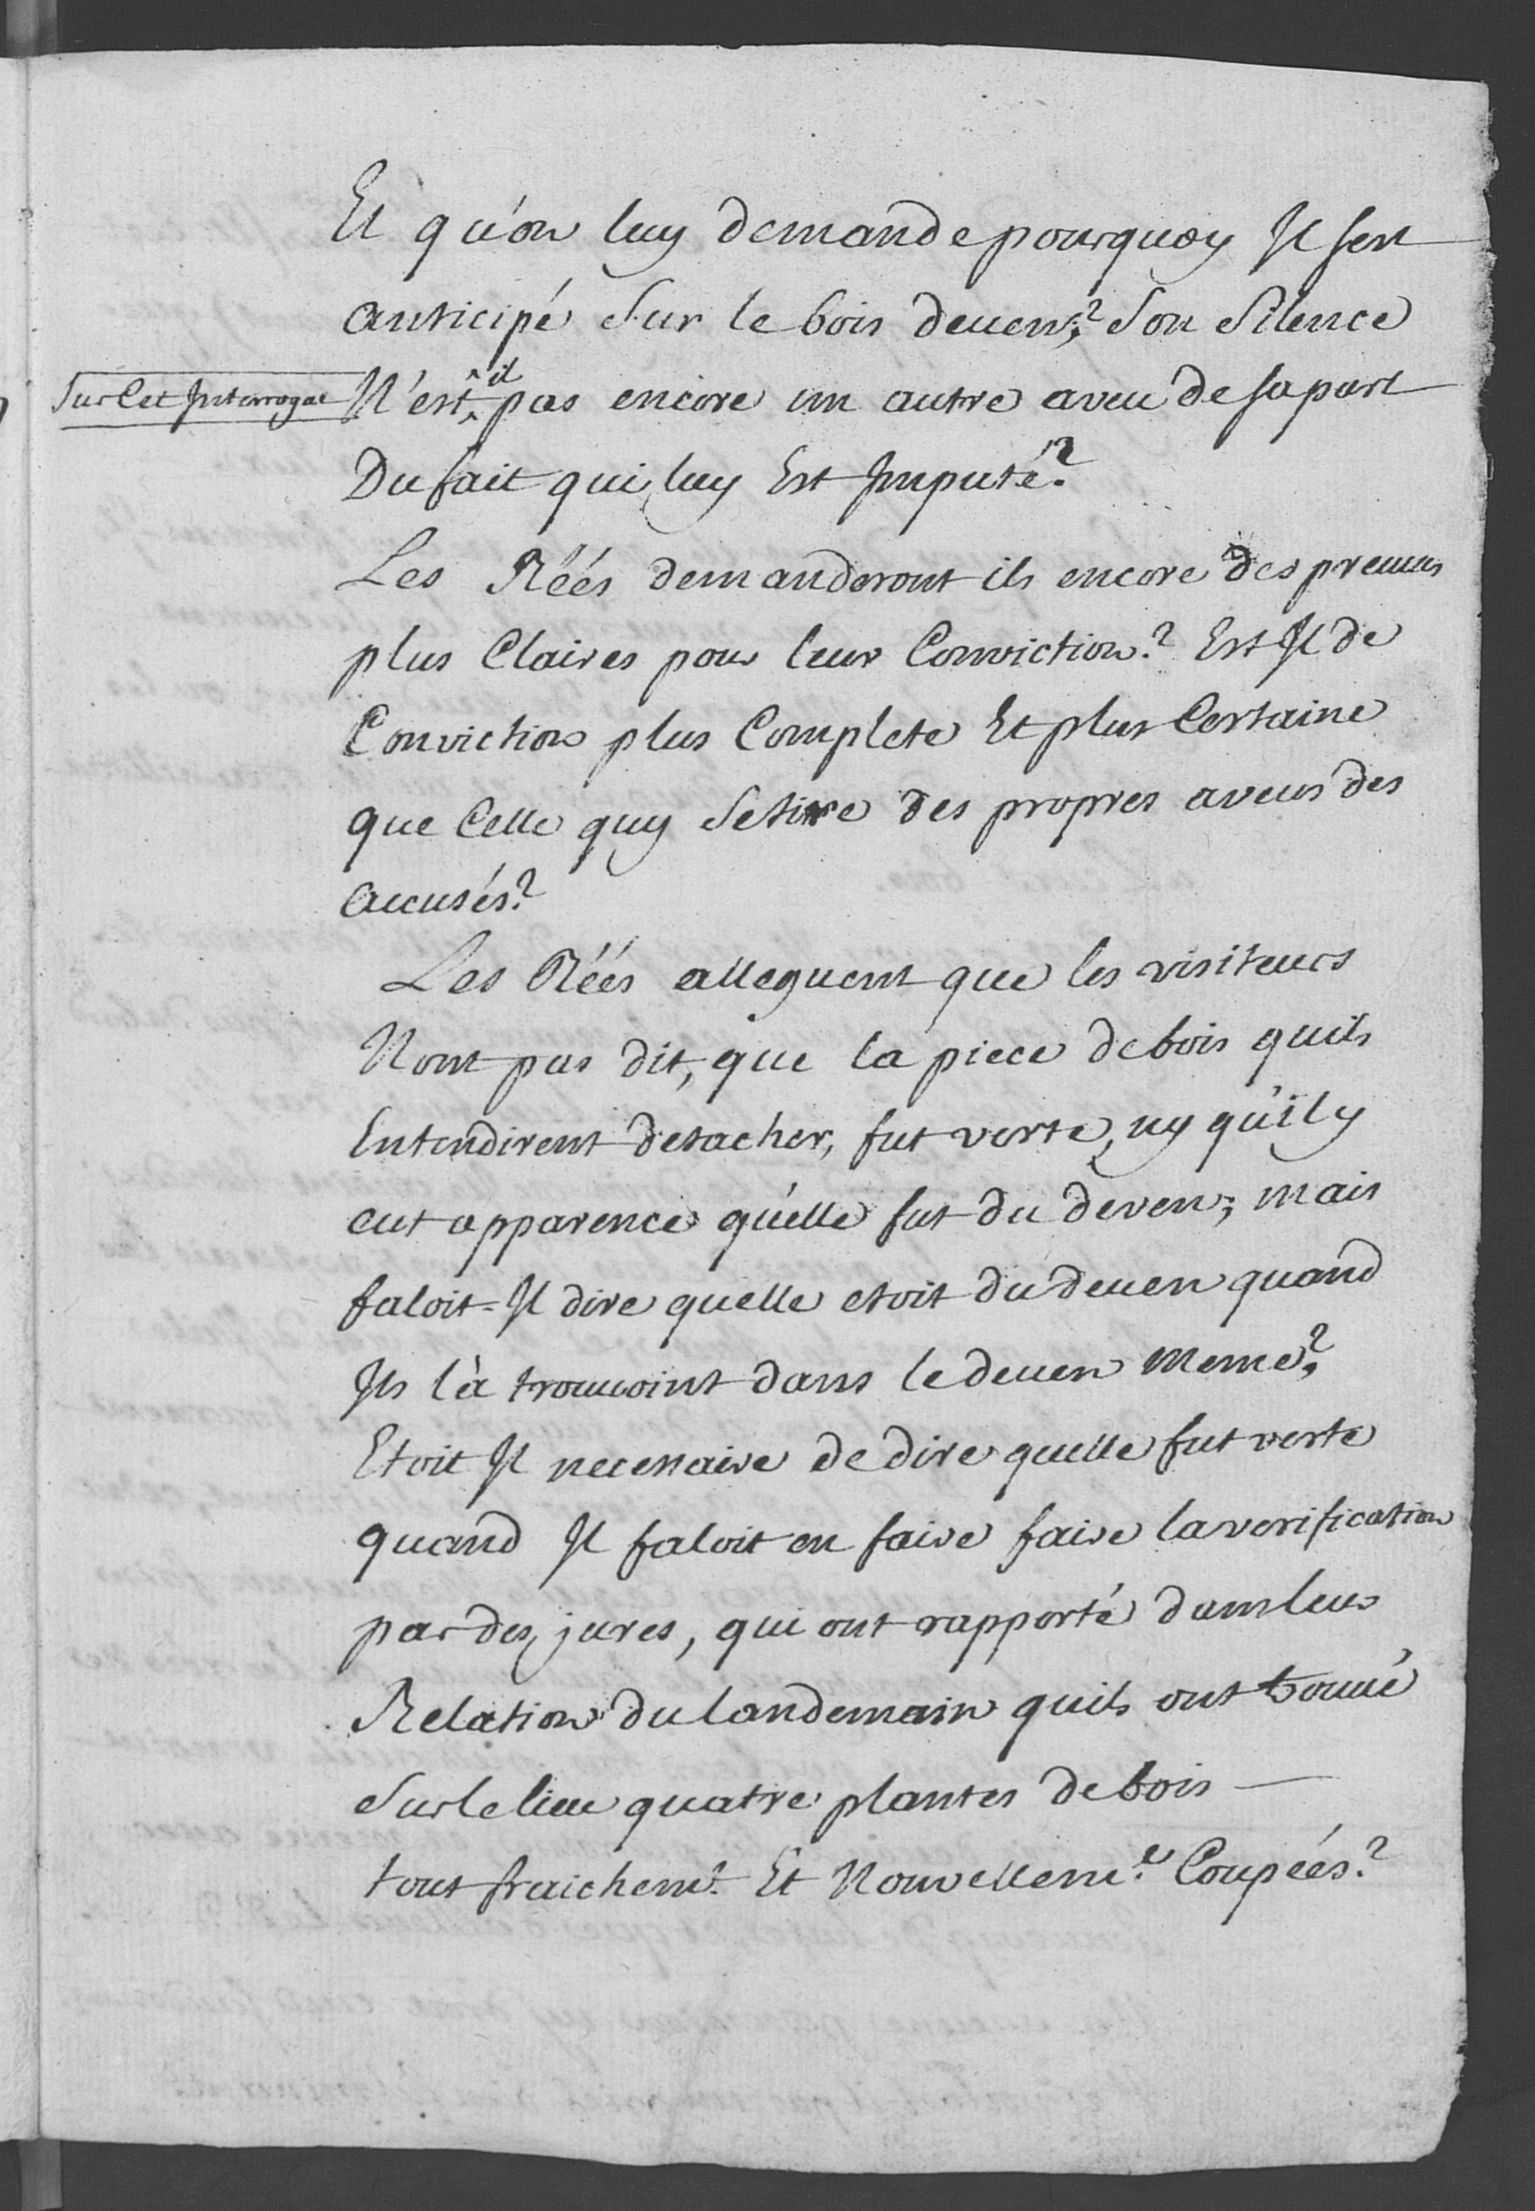 Et qu'on luy demande pourquoy Il sest
anticipé Sur le bois deven;? Son Silence
Sur Cet Interrogat N'est il pas encore un autre aveu de sa part
Du fait qui luy Est Imputé?
Les Réés demanderont ils encore des preuves
plus Claires pour leur Conviction? Est Il de
Conviction plus Complete Et plus Certaine
que Celle quy Se tire des propres aveus des
accusés?
Les Réés alleguent que les visiteurs
Nont pas dit, que la piece de bois quils
Entendirent detacher, fut verte, ny qu'il y
eut apparence qu'elle fut du deven; mais
faloit-Il dire quelle etoit du deven quand
Ils l'à trouvoint dans le deven meme?
Etoit Il necessaire de dire quelle fut verte
quand Il faloit en faire faire la verification
par des jures, qui ont rapporté dans leur
Relation du landemain quils ont trouvé
Sur le lieu quatre plantes de bois
tout fraichemt. Et Nouvelleme.t Coupéés?